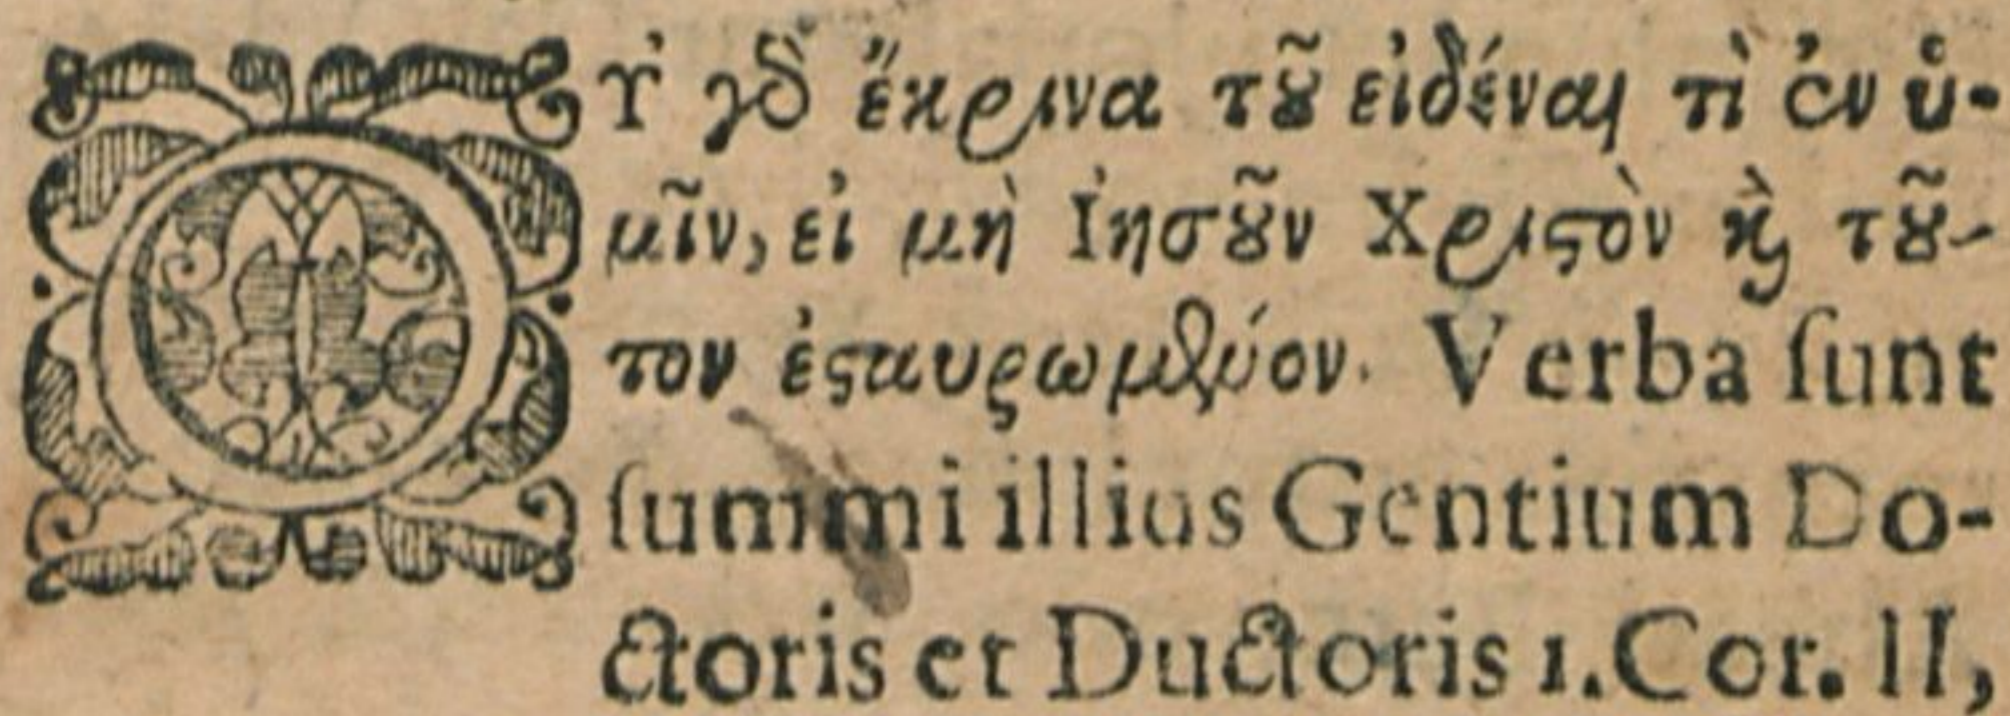 Οὐ γὰρ ἔκρινα τοῦ εἰδέναι τὶ ἐν ὑ-
μῖν, εἰ μὴ Ἰησοῦν Χριστὸν καὶ τοῦ-
τον ἐσταυρωμένον. Verba ſunt
ſummi illius Gentium Do-
ctoris et Ductoris 1. Cor. II,